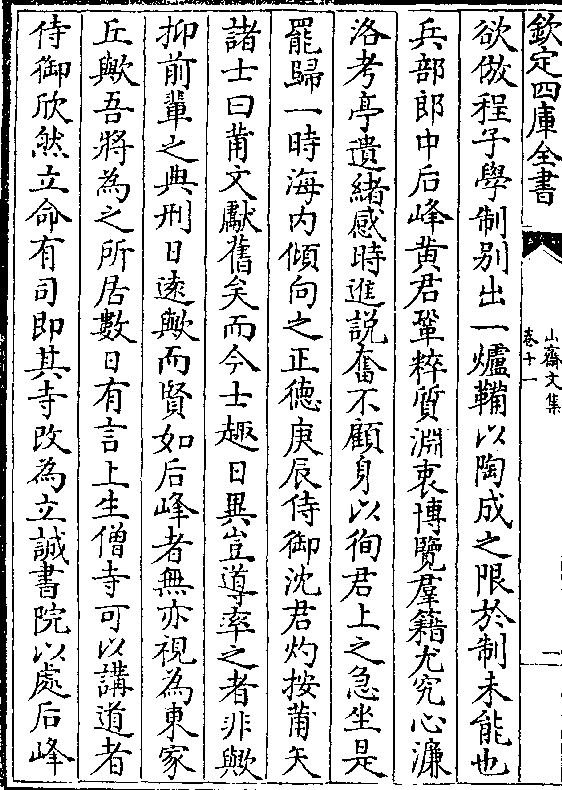 欽定四庫全書
山齋文集
卷十一
一
欲倣程子學制别出一爐鞴以陶成之限於制未能也
兵部郎中后峰黄君鞏粹質淵衷博覽羣籍尤究心濂
洛考亭遺緒感時進説奮不顧身以徇君上之急坐是
罷歸一時海内傾向之正德庚辰侍御沈君灼按莆矢
諸士曰莆文獻舊矣而今士趣日異豈導率之者非歟
抑前輩之典刑日逺歟而賢如后峰者無亦視為東家
丘歟吾將為之所居數日有言上生僧寺可以講道者
侍御欣然立命有司即其寺改為立誠書院以處后峰